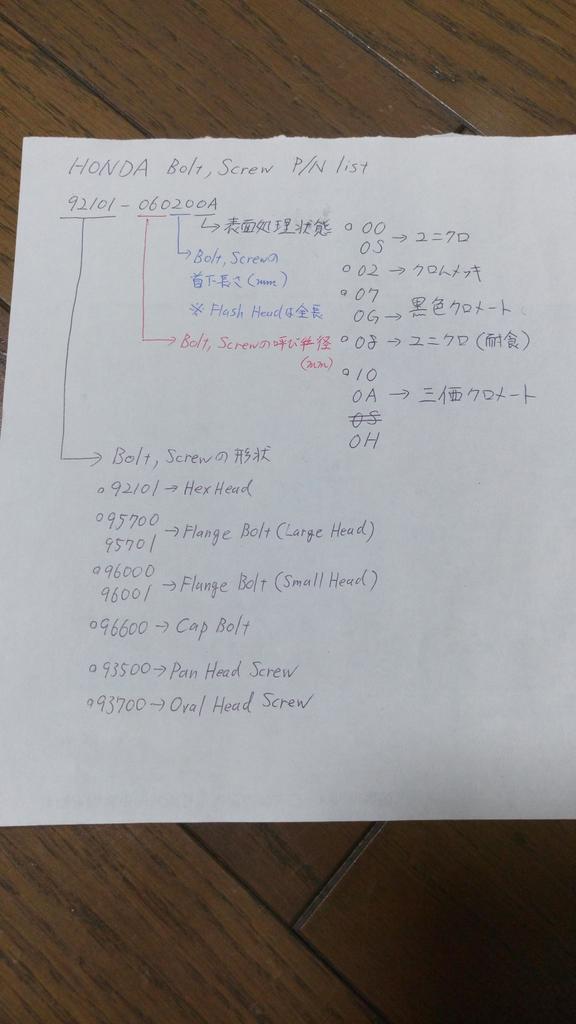 HONDA Bolt, Screw P/N list
92101-060200A
→ 表面処理状態
→ Bolt, Screwの
首下長さ(mm)
※ Flash Headは全長
→ Bolt, Screwの呼び半径
(mm)
○ 00
0S → ユニクロ
○ 02 → クロムメッキ
○ 07
0G → 黒色クロメート
○ 08 → ユニクロ(耐食)
○ 10
0A → 三価クロメート
0S
0H
→ Bolt, Screwの形状
○ 92101 → Hex Head
○ 95700
95701 → Flange Bolt (Large Head)
○ 96000
96001 → Flange Bolt (Small Head)
○ 96600 → Cap Bolt
○ 93500 → Pan Head Screw
○ 93700 → Oval Head Screw